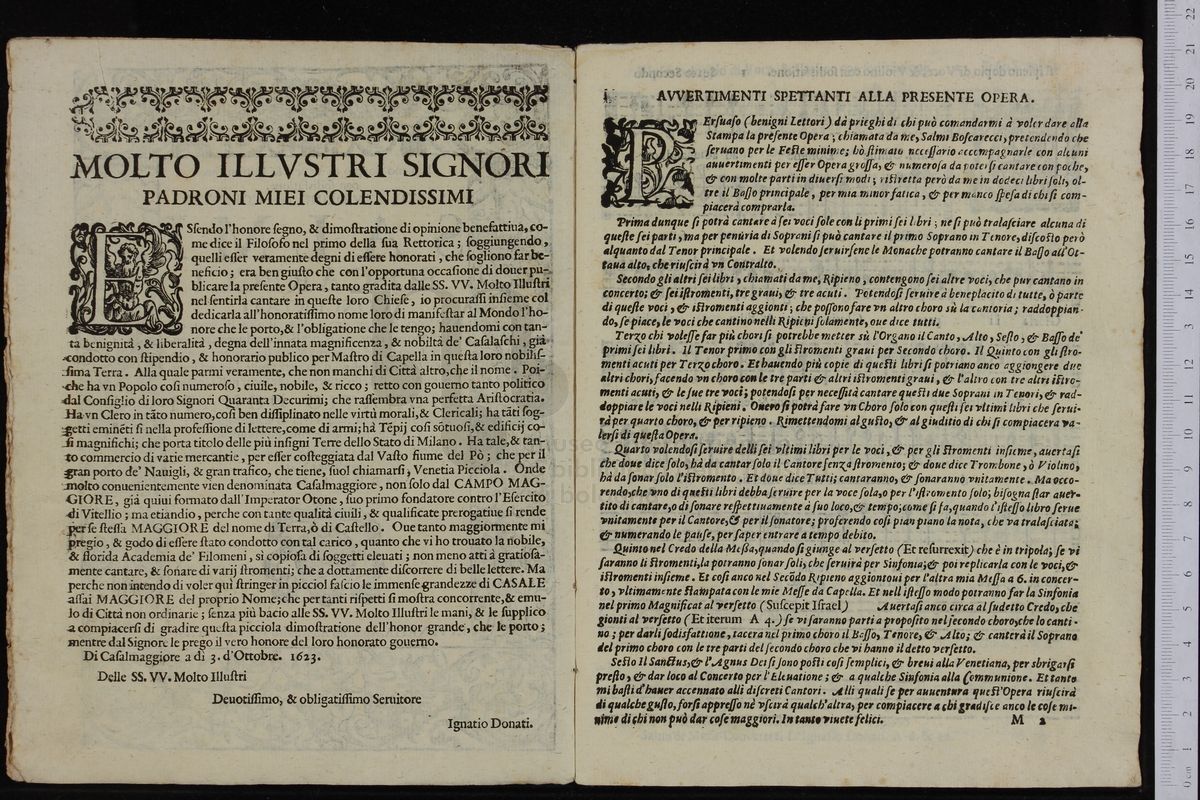 MOLTO ILLVSTRI SIGNORI
PADRONI MIEI COLENDISSIMI
ESſendo l'honore ſegno, & dimoſtratione di opinione benefattiua, co-
me dice il Filoſofo nel primo della ſua Rettorica; ſoggiungendo,
quelli eſſer veramente degni di eſſere honorati, che ſogliono far be-
neficio; era ben giuſto che con l'opportuna occaſione di douer pu-
blicare la preſente Opera, tanto gradita dalle SS. VV. Molto Illuſtri
nel ſentirla cantare in queſte loro Chieſe, io procuraſſi inſieme col
dedicarla all'honoratiſſimo nome loro di manifeſtar al Mondo l'ho-
nore che le porto, & l'obligatione che le tengo; hauendomi con tan-
ta benignità, & liberalità, degna dell'innata magnificenza, & nobiltà de' Caſalaſchi, già
condotto con ſtipendio, & honorario publico per Maſtro di Capella in queſta loro nobiliſ-
ſima Terra. Alla quale parmi veramente, che non manchi di Città altro, che il nome. Poi-
che ha vn Popolo coſi numeroſo, ciuile, nobile, & ricco; retto con gouerno tanto politico
dal Conſiglio di loro Signori Quaranta Decurimi; che raſſembra vna perfetta Ariſtocratia.
Ha vn Clero in tãto numero, coſi ben diſſiplinato nelle virtù morali, & Clericali; ha tãti ſog-
getti eminẽti ſi nella profeſſione di lettere, come di armi; hà Tẽpij coſi sõtuoſi, & edificij co-
ſi magnifichi; che porta titolo delle più inſigni Terre dello Stato di Milano. Ha tale, & tan-
to commercio di varie mercantie, per eſſer coſteggiata dal Vaſto fiume del Pò; che per il
gran porto de' Nauigli, & gran trafico, che tiene, ſuol chiamarſi, Venetia Picciola. Onde
molto conuenientemente vien denominata Caſalmaggiore, non ſolo dal CAMPO MAG-
GIORE, già quiui formato dall'Imperator Otone, ſuo primo fondatore contro l'Eſercito
di Vitellio; ma etiandio, perche con tante qualità ciuili, & qualificate prerogatiue ſi rende
per ſe ſteſſa MAGGIORE del nome di Terra, ò di Caſtello. Oue tanto maggiormente mi
pregio, & godo di eſſere ſtato condotto con tal carico, quanto che vi ho trouato la nobile,
& florida Academia de' Filomeni, ſi copioſa di ſoggetti eleuati; non meno atti à gratioſa-
mente cantare, & ſonare di varij ſtromenti; che a dottamente diſcorrere di belle lettere. Ma
perche non intendo di voler qui ſtringer in picciol faſcio le immenſe grandezze di CASALE
aſſai MAGGIORE del proprio Nome; che per tanti riſpetti ſi moſtra concorrente, & emu-
lo di Città non ordinarie; ſenza più bacio alle SS. VV. Molto Illuſtri le mani, & le ſupplico
a compiacerſi di gradire queſta picciola dimoſtratione dell'honor grande, che le porto;
mentre dal Signore le prego il vero honore del loro honorato gouerno.
Di Caſalmaggiore a di 3. d'Ottobre. 1623.
Delle SS. VV. Molto Illuſtri
Deuotiſſimo, & obligatiſſimo Seruitore
Ignatio Donati.
AVVERTIMENTI SPETTANTI ALLA PRESENTE OPERA.
PErſuaſo (benigni Lettori) dà prieghi di chi può comandarmi à voler dare alla
Stampa la preſente Opera; chiamata da me, Salmi Boſcarecci, pretendendo che
ſeruano per le Feſte minime; hò ſtimato neceſſario accompagnarle con alcuni
auuertimenti per eſſer Opera groſſa, & numeroſa da poterſi cantare con poche,
& con molte parti in diuerſi modi; riſtretta però da me in dodeci libri ſoli, ol-
tre il Baſſo principale, per mia minor fatica, & per manco ſpeſa di chi ſi com-
piacerà comprarla.
Prima dunque ſi potrà cantare à ſei voci ſole con li primi ſei libri; ne ſi può tralaſciare alcuna di
queſte ſei parti, ma per penuria di Soprani ſi può cantare il primo Soprano in Tenore, diſcoſto però
alquanto dal Tenor principale. Et volendo ſeruirſene le Monache potranno cantare il Baſſo all'Ot-
taua alto, che riuſcirà vn Contralto.
Secondo gli altri ſei libri, chiamati da me, Ripieno, contengono ſei altre voci, che pur cantano in
concerto; & ſei iſtromenti, tre graui, & tre acuti. Potendoſi ſeruire à beneplacito di tutte, ò parte
di queſte voci, & iſtromenti aggionti; che poſſono fare vn altro choro sù la cantoria; raddoppian-
do, ſe piace, le voci che cantino nelli Ripieni ſolamente, oue dice tutti.
Terzo chi voleſſe far più chori ſi potrebbe metter sù l'Organo il Canto, Alto, Seſto, & Baſſo de'
primi ſei libri. Il Tenor primo con gli ſtromenti graui per Secondo choro. Il Quinto con gli ſtro-
menti acuti per Terzo choro. Et hauendo più copie di queſti libri ſi potriano anco aggiongere due
altri chori, facendo vn choro con le tre parti & altri iſtromenti graui, & l'altro con tre altri iſtro-
menti acuti, & le ſue tre voci; potendoſi per neceſſità cantare queſti due Soprani in Tenori, & rad-
doppiare le voci nelli Ripieni. Ouero ſi potrà fare vn Choro ſolo con queſti ſei vltimi libri che ſerui-
rà per quarto choro, & per ripieno. Rimettendomi al guſto, & al giuditio di chi ſi compiacera va-
lerſi di queſta Opera.
Quarto volendoſi ſeruire delli ſei vltimi libri per le voci, & per gli ſtromenti inſieme, auertaſi
che doue dice ſolo, hà da cantar ſolo il Cantore ſenza ſtromento; & doue dice Trombone, ò Violino,
hà da ſonar ſolo l'iſtromento. Et doue dice Tutti; cantaranno, & ſonaranno vnitamente. Ma occo-
rendo, che vno di queſti libri debba ſeruire per la voce ſola, o per l'iſtromento ſolo; biſogna ſtar auer-
tito di cantare, o di ſonare reſpettiuamente à ſuo loco, & tempo; come ſi fa, quando l'iſteſſo libro ſerue
vnitamente per il Cantore, & per il ſonatore; proferendo coſi pian piano la nota, che va tralaſciata;
& numerando le pauſe, per ſaper entrare a tempo debito.
Quinto nel Credo della Meſſa, quando ſi giunge al verſetto (Et reſurrexit) che è in tripola; ſe vi
ſaranno li ſtromenti, la potranno ſonar ſoli, che ſeruirà per Sinfonia; & poi replicarla con le voci, &
iſtromenti inſieme. Et coſi anco nel Secõdo Ripieno aggiontoui per l'altra mia Meſſa a 6. in concer-
to, vltimamente ſtampata con le mie Meſſe da Capella. Et nell iſteſſo modo potranno far la Sinfonia
nel primo Magnificat al verſetto (Suſcepit Iſrael) Auertaſi anco circa al ſudetto Credo, che
gionti al verſetto (Et iterum A 4.) ſe vi ſaranno parti a propoſito nel ſecondo choro, che lo canti-
no; per darli ſodisfattione, tacera nel primo choro il Baſſo, Tenore, & Alto; & canterà il Soprano
del primo choro con le tre parti del ſecondo choro che vi hanno il detto verſetto.
Seſto Il Sanctus, & l'Agnus Dei ſi ſono poſti coſi ſemplici, & breui alla Venetiana, per sbrigarſi
preſto, & dar loco al Concerto per l'Eleuatione; & a qualche Sinfonia alla Communione. Et tanto
mi baſti d'hauer accennato alli diſcreti Cantori. Alli quali ſe per auuentura queſt'Opera riuſcirà
di qualche guſto, forſi appreſſo nè vſcirà qualch'altra, per compiacere a chi gradiſce anco le coſe mi-
nime di chi non può dar coſe maggiori. In tanto viuete felici. M 2